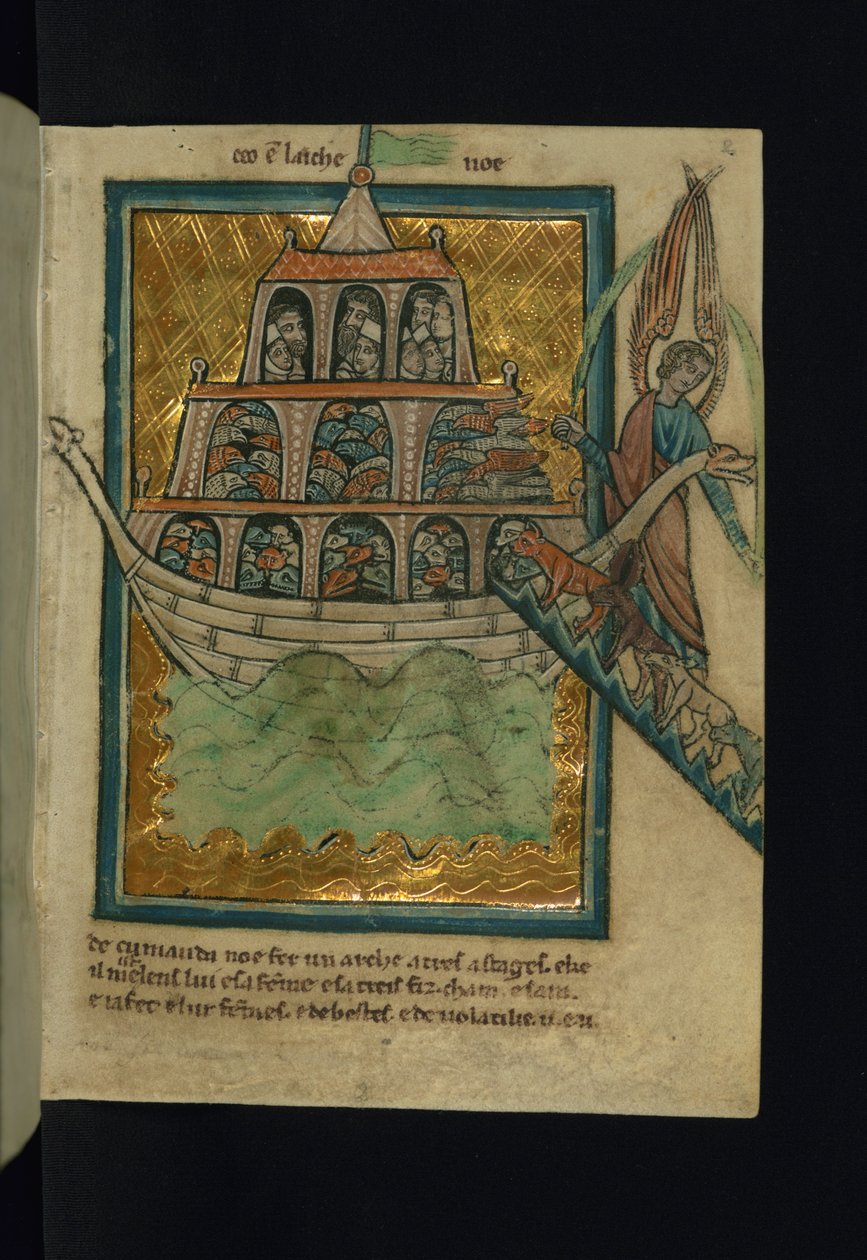 ceo ē larche noe
de cumanda noe fer un arche a treis astages. e ke
il mesist enz lui e sa fēme e sa treis fiz. cham. e sam.
e iafet e lur fēmes. e de bestes. e de uolatilie. u. e. u.
2